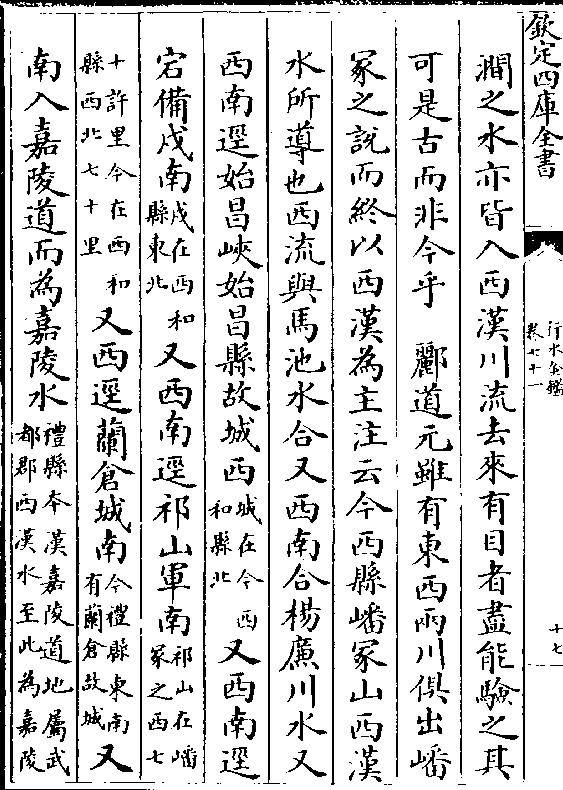 欽定四庫全書
行水金鑑
卷七十一
十七
澗之水亦皆入西漢川流去來有目者盡能驗之其
可是古而非今乎　酈道元雖有東西兩川俱出嶓
冢之說而終以西漢為主注云今西縣嶓冢山西漢
水所導也西流與馬池水合又西南合楊廉川水又
西南逕始昌峽始昌縣故城西城在今西和縣北又西南逕
宕備戍南戍在西和縣東北又西南逕祁山軍南祁山在嶓冢之西七
十許里今在西和縣西北七十里又西逕蘭倉城南今禮縣東南有蘭倉故城又
南入嘉陵道而為嘉陵水禮縣本漢嘉陵道地屬武都郡西漢水至此為嘉陵